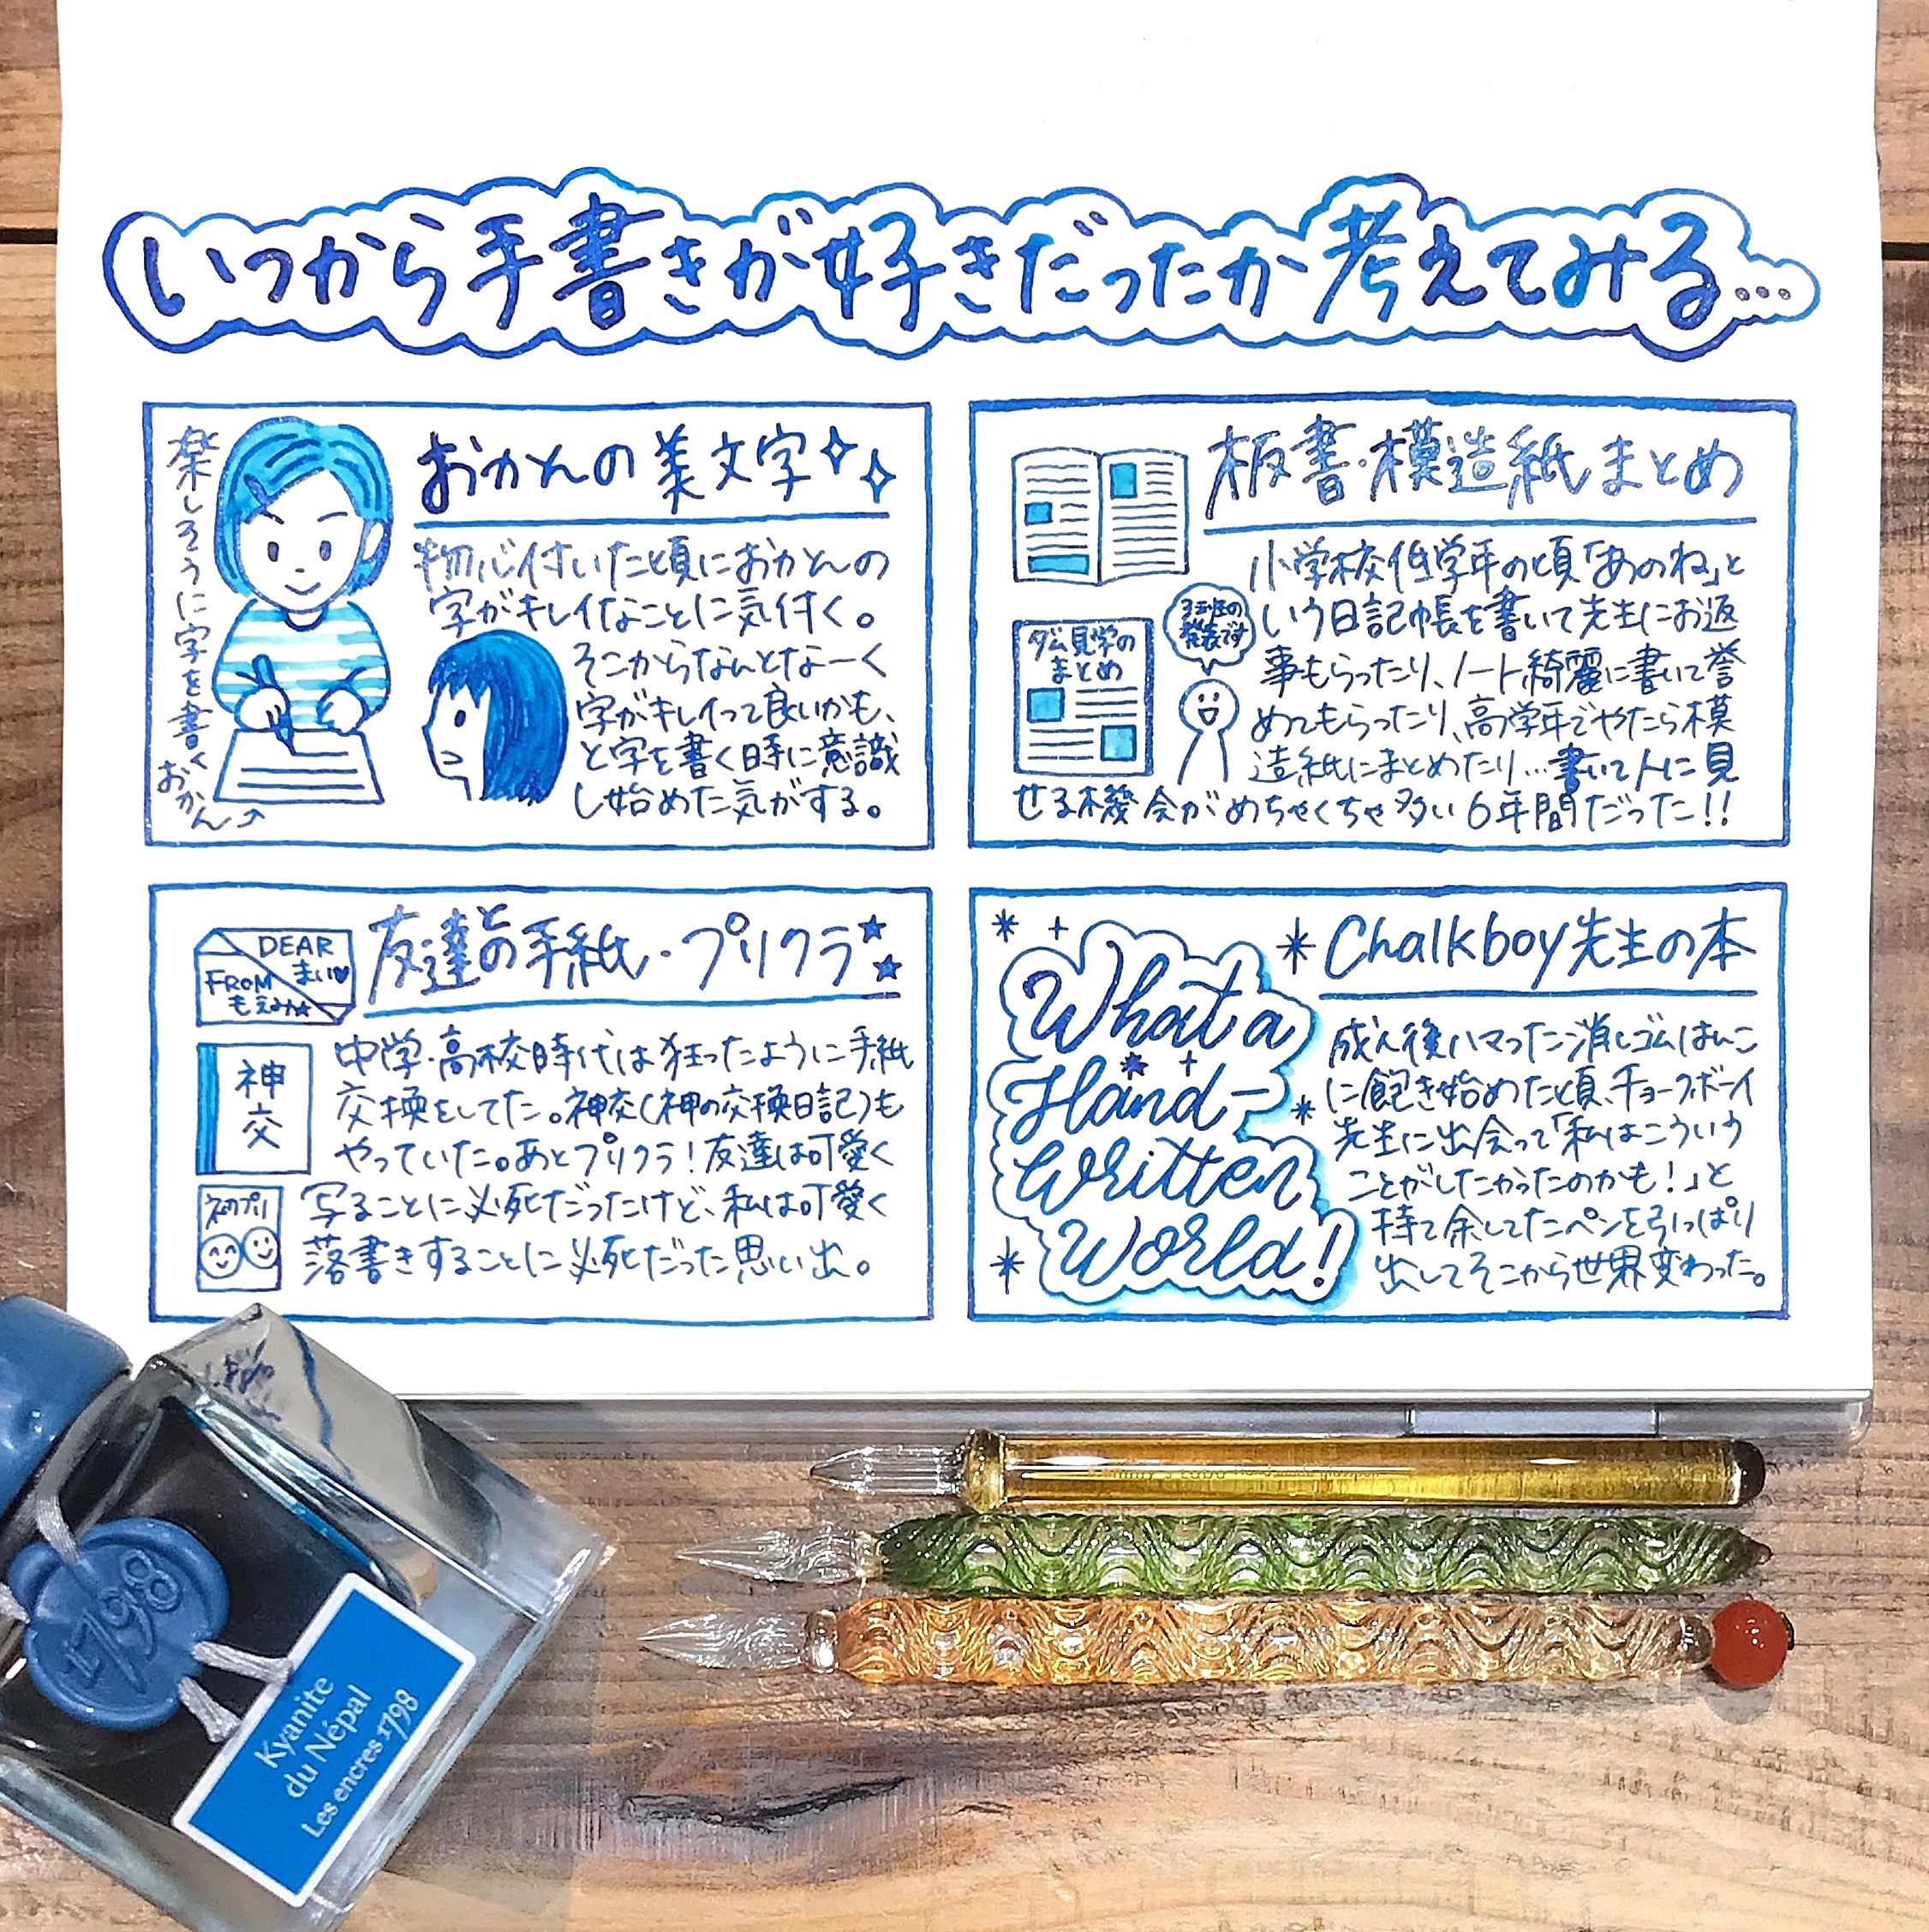 いつから手書きが好きだったか考えてみる…
おかんの美文字
楽しそうに字を書く
おかん
物心付いた頃におかんの
字がキレイなことに気付く。
そこからなんとなーく
字がキレイって良いかも、
と字を書く時に意識
し始めた気がする。
板書・模造紙まとめ
ダム見学の
まとめ
3班の
発表です
小学校低学年の頃「あのね」と
いう日記帳を書いて先生にお返
事もらったり、ノート綺麗に書いて誉
めてもらったり、高学年でやたら模
造紙にまとめたり…書いて人に見
せる機会がめちゃくちゃ多い6年間だった!!
友達との手紙・プリクラ
DEAR
まい♡
FROM
もえみ☆
神
交
初プリ
中学・高校時代は狂ったように手紙
交換をしてた。神交(神の交換日記)も
やっていた。あとプリクラ!友達は可愛く
写ることに必死だったけど、私は可愛く
落書きすることに必死だった思い出。
Chalkboy先生の本
What a
Hand-
Written
World!
成人後ハマった消しゴムはんこ
に飽き始めた頃、チョークボーイ
先生に出会って「私はこういう
ことがしたかったのかも!」と
持て余してたペンを引っぱり
出してそこから世界変わった。
1798
Kyanite
du Népal
Les encres 1798